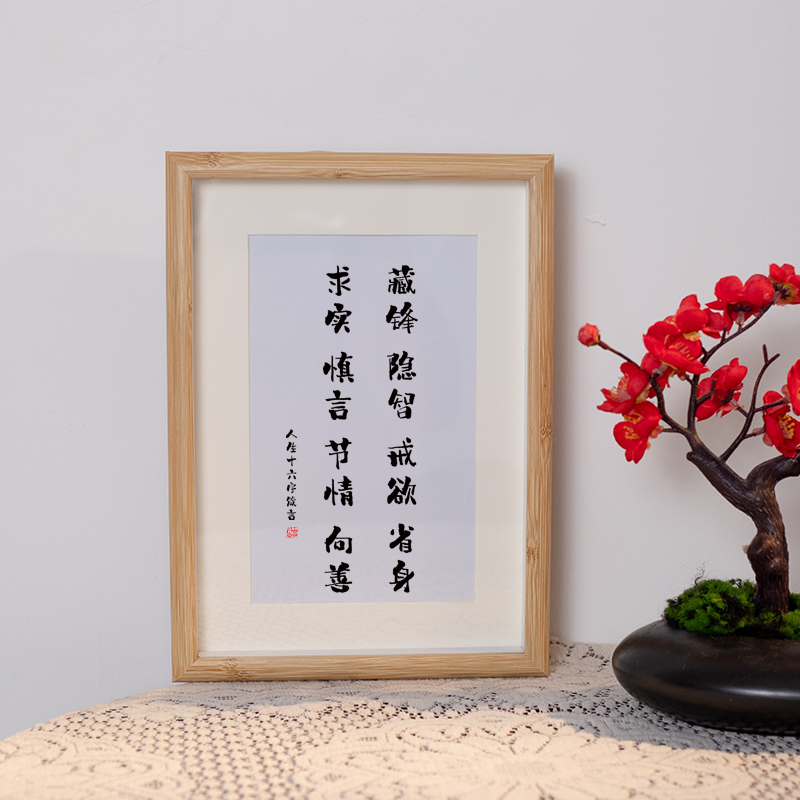 藏锋 隐智 戒欲 省身
求实 慎言 节情 向善
人生十六字箴言